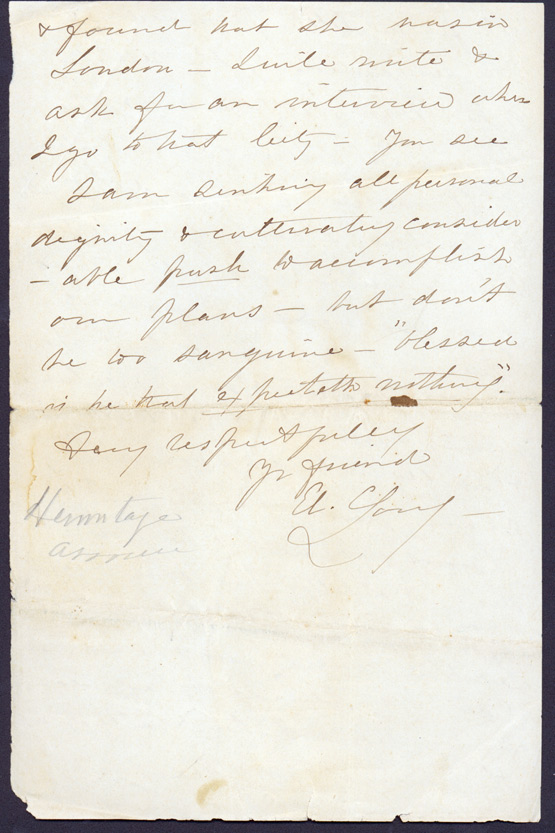 & found that she was in
London – I will write &
ask for an interview when
I go to that City – You see
I am sinking all personal
dignity & cultivating consider
– able push to accomplish
our plans – but don't
be too sanguine – "blessed
is he that expecteth nothing".
Very respectfully
Yr friend
E. Long
Hermitage